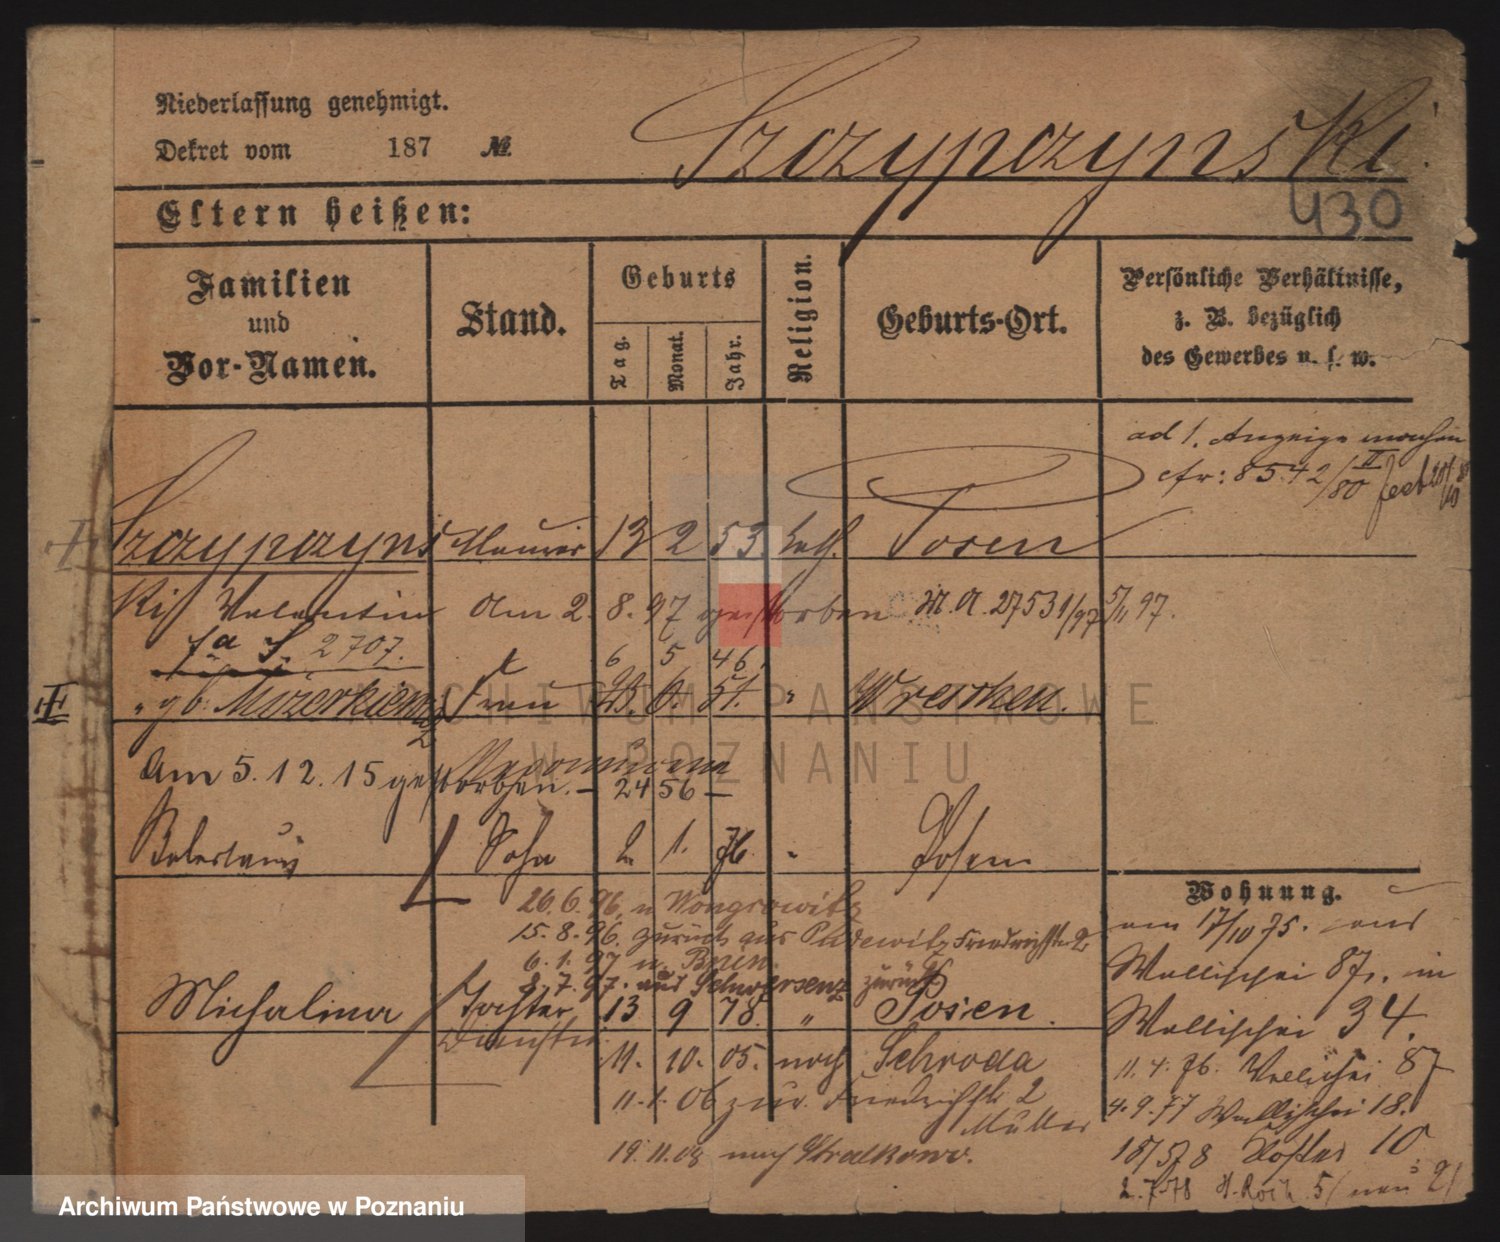 Niederlassung genehmigt.
Dekret vom 187 №
Szczypczynski.
430
Eltern heißen:
Familien
und
Vor-Namen.
Stand.
Geburts
Tag.
Monat.
Jahr.
Religion.
Geburts-Ort.
Persönliche Verhältnisse,
z. B. bezüglich
des Gewerbes u. s. w.
ad 1. Anzeige machen
cfr: 8542/80 II
Szczypczyns Maurer 13 2 53 kath. Posen
ki Valentin am 2. 8. 97 gestorben M. A. 27531/97 5/11 97.
2707.
6 5 46.
" gb. Frau 51. " Wreschen.
Am 5. 12. 15 gestorben. — 24 56 —
Boleslaus Sohn 2. 1. 76. " Posen
26. 6. 96. n Wongrowitz
15. 8. 96. zurück aus Pudewitz Friedrichstr 2
6. 1. 97 n. Bnin.
2. 7. 97. aus Schwersenz zurück
Michalina Tochter 13 9 78. " Posen.
11. 10. 05. nach Schroda
11. 1. 06 zur. Friedrichstr 2
Müller
19. 11. 08 nach Stralkowo.
Wohnung.
am 17/10 75. aus
Wallischei 87. in
Wallischei 34.
11. 4. 76. Wallischei 87
4. 9. 77 Wallischei 18.
18/5 78 10
2. 7. 78 5/
ARCHIWUM PAŃSTWOWE
W POZNANIU
Archiwum Państwowe w Poznaniu